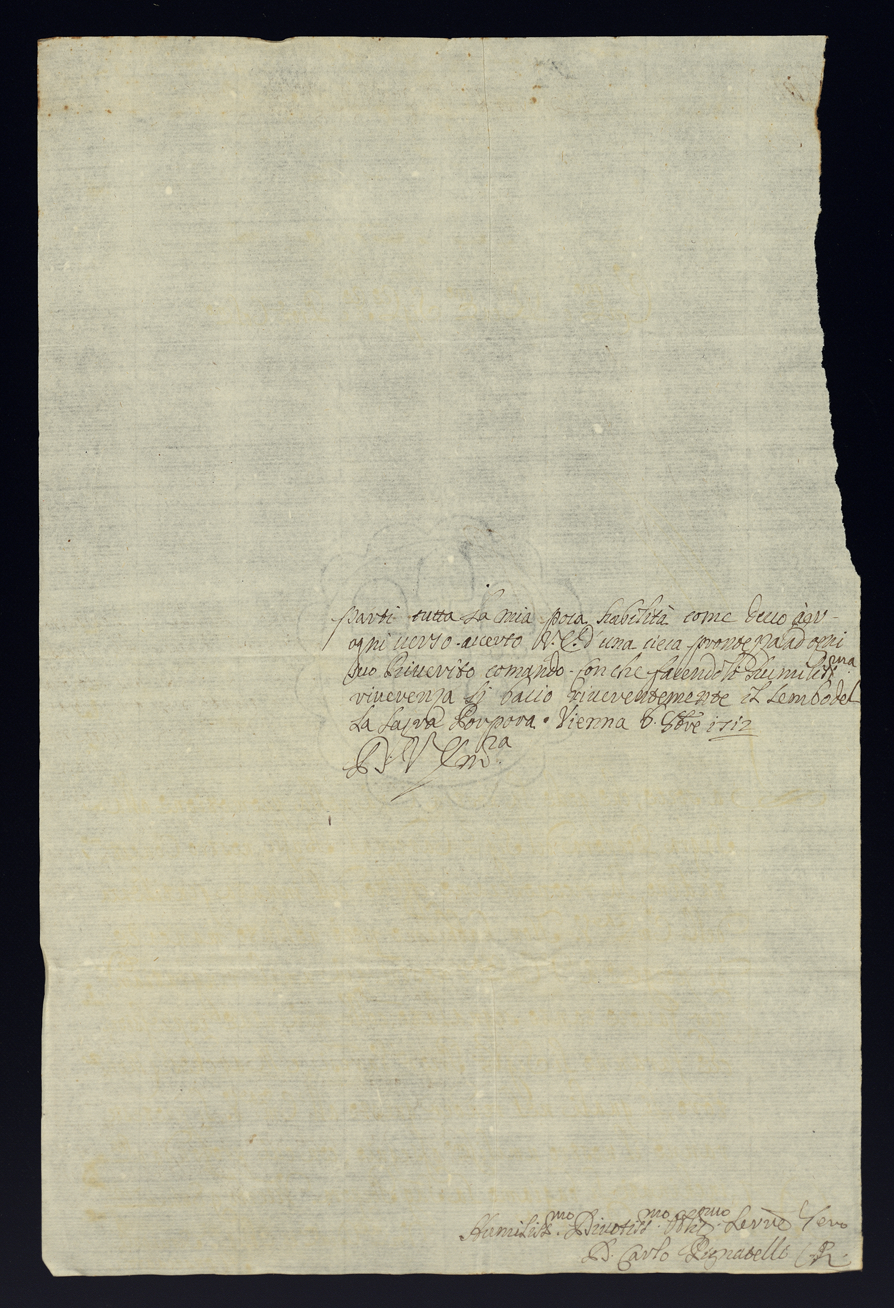 parti tutta la mia poca habilità come devo à gr-
ogni verso. accerto V. E. d'una cieca prontezza ad ogni
suo Riverito comando - Con che facendoli humiliss.ma
riverenza li bacio riverentemente il Lembo del
la Sagra Porpora. Vienna 6. 8bre 1712
D. V. Em.za
Humiliss.mo Divotiss.mo Oblig.mo Serv.e Vero
D. Carlo Pignatelli